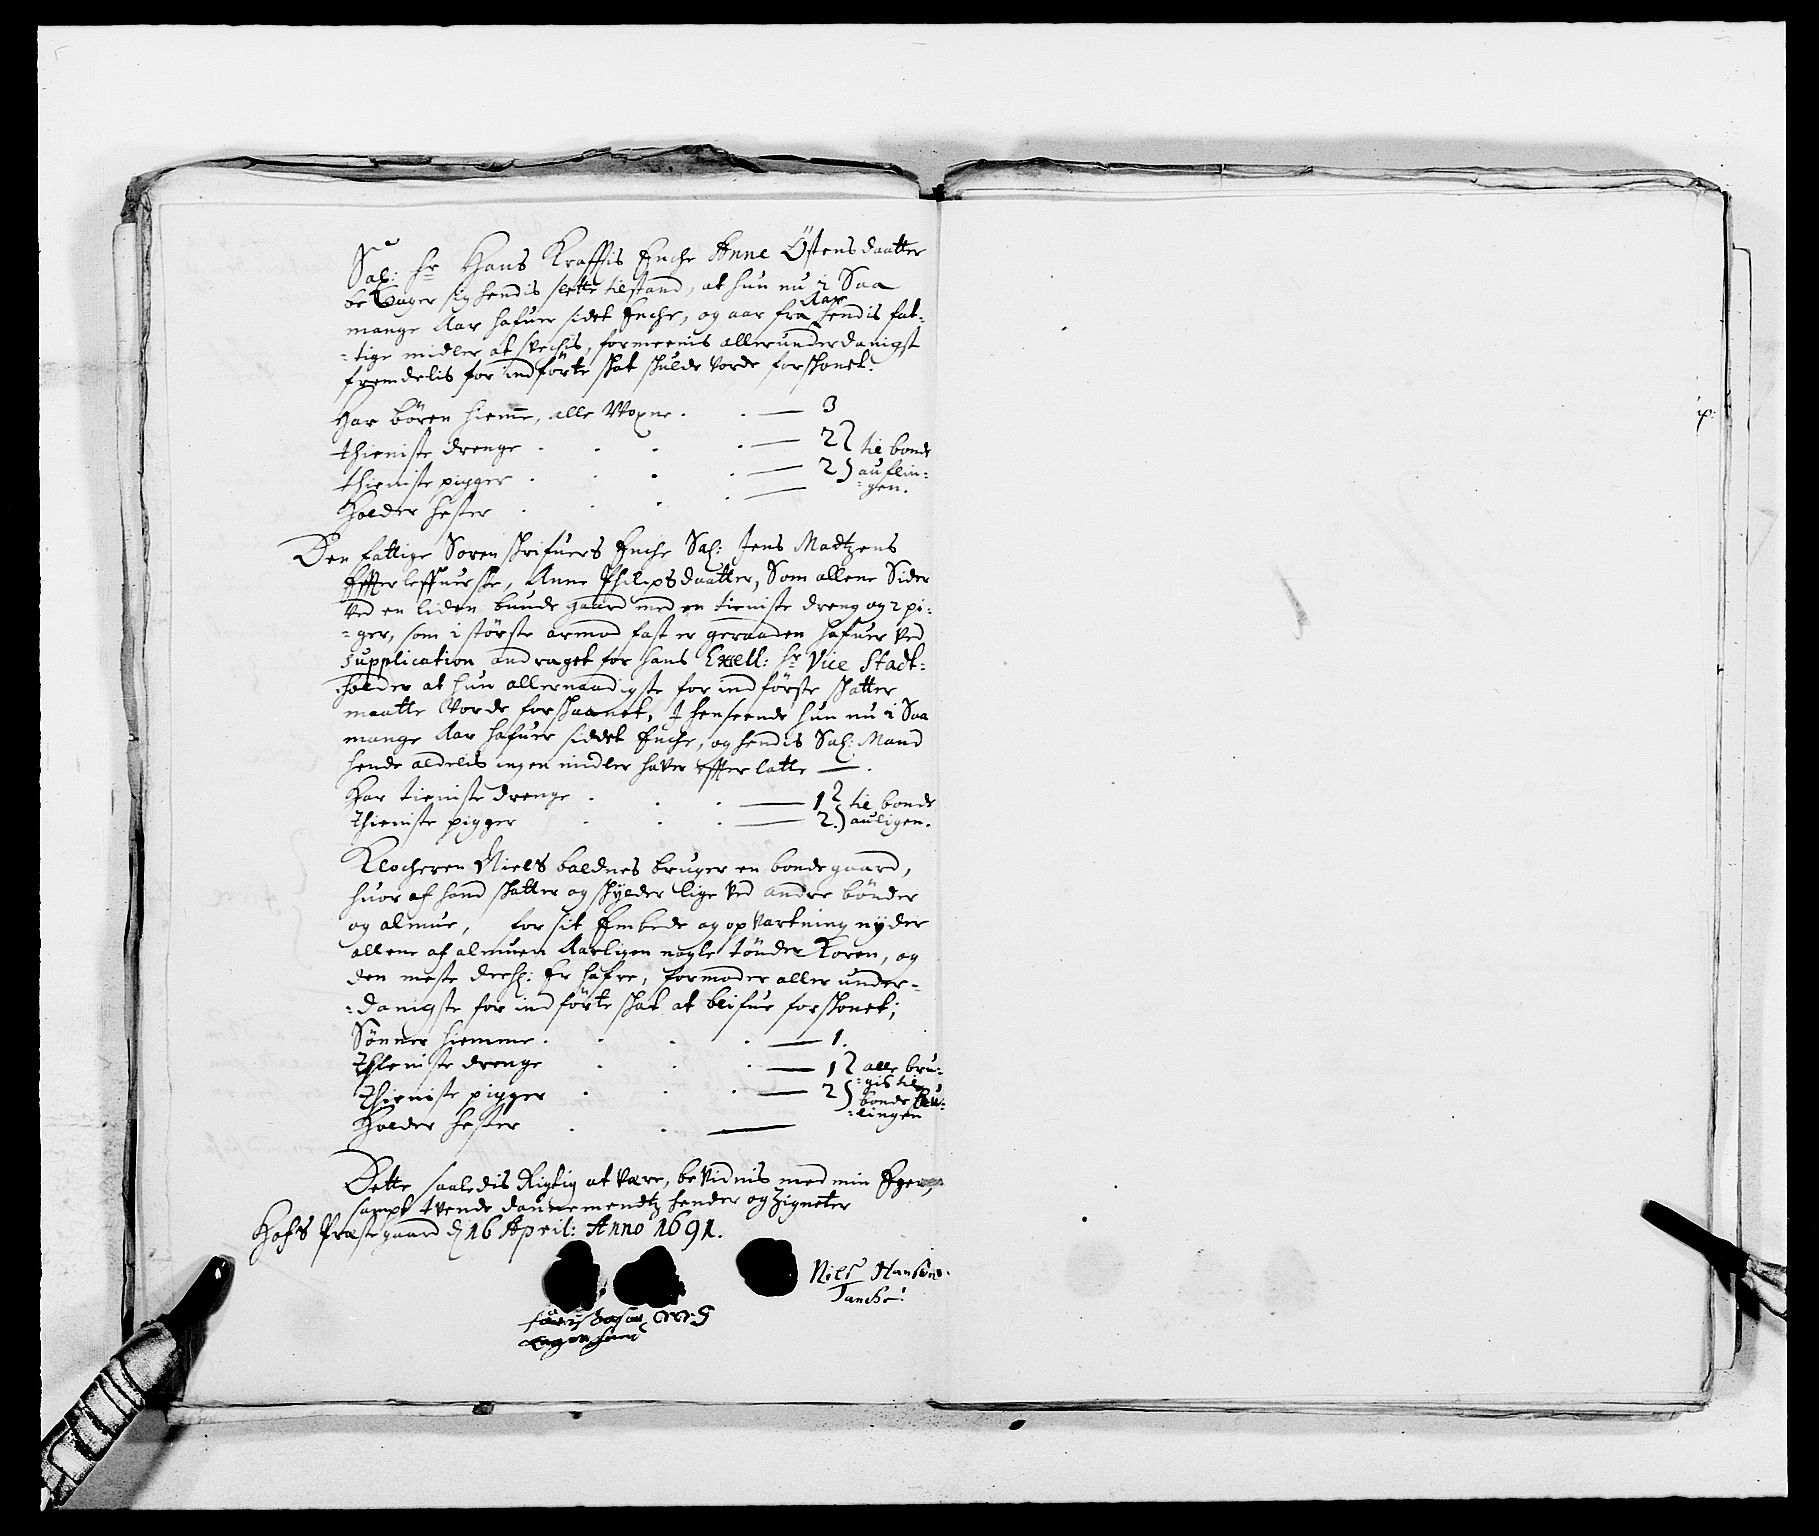 Sal: hr Hans Kraffts Enche Anne Östensdaatter
beklager sig hendis slette tilstand, at hun nu i Saa
mange Aar hafuer sidet Enche, og aar fra Aar hendis fat-
-tige midler at svechis, formeenis allerunderdanigst
fremdelis for indförte skat skulde vorde forskonet.
Har bören hiemme, alle Woxne . . — 3
thieniste drenge . . . . — 2 til bonde
thieniste pigger . . . — 2 auflin-
-gen.
Holder hester . . . . —
Den fattige Sorenskrifuers Enche Sal: Jens Madtzens
Effterleffuerske, Anne Philipsdaatter, Som allene Sider
ved en liden bunde gaard med en tieniste dreng og 2 pi-
-ger, som i störste armod fast er geraaden hafuer ved
supplication andraget for hans Exell: hr Vice Stadt-
-holder at hun allernaadigste for indförte skatter
maatte vorde forskaanet, J henseende hun nu i Saa
mange Aar hafuer siddet Enche, og hendis Sal: Mand
hende aldelis ingen midler haver effterlatt — .
Har tieniste drenge . . . — 1 til bonde
thieniste pigger . . . — 2. auligen.
Klocheren Niels baldnes bruger en bonde gaard,
huor af hand skatter og skylder lige ved andre bönder
og almue, for sit Embede og opvartning nyder
allene af almuen Aarligen nogle tönder Koren, og
den meste deehl: Er hafre, formoder allerunder-
-danigste for indförte skat at blifue forskonet;
Sönner hiemme . . . . — 1.
Thieniste drenge . . . — 1 alle bru-
-gis til
Thieniste pigger . . . — 2 bonde Au-
-lingen
Holder hester . . —
Dette saaledis Rigtig at være, beVidnis med min Egen,
sampt tvende dannemendtz hender og Zigneter
Hofs Præstegaard d 16 April: Anno 1691.
Niels Hansøn
Tanche:
egen hand